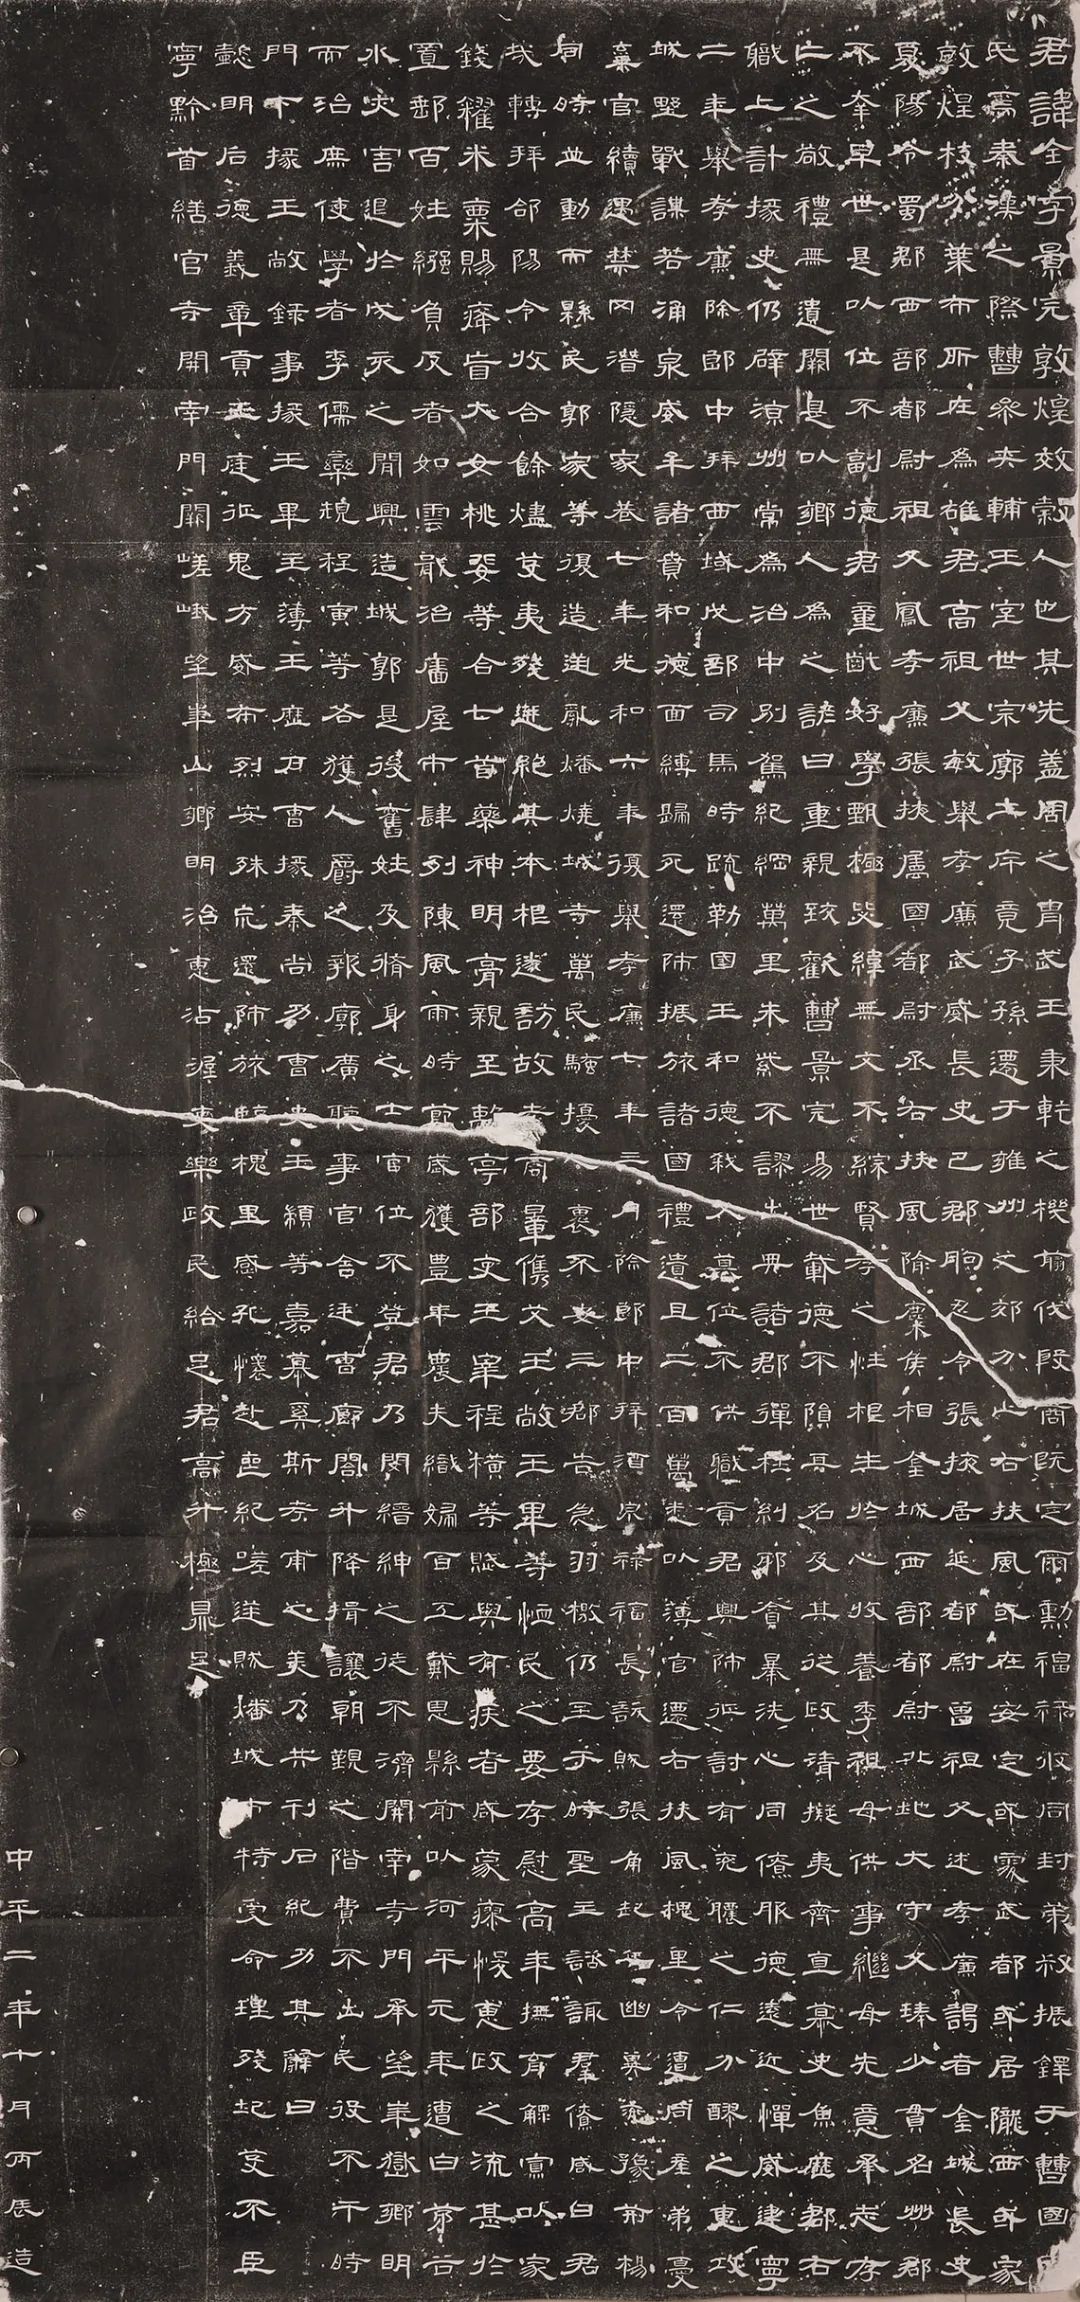 君諱全字景完敦煌效穀人也其先蓋周之胄武王秉乾之機翦伐殷商既定爾勳福祿攸同封弟叔振鐸于曹國因
氏焉秦漢之際曹參夾輔王室世宗廓土斥竟子孫遷于雍州之郊分止右扶風或在安定或處武都或居隴西或家
敦煌枝分葉布所在為雄君高祖父敏舉孝廉武威長史巴郡朐忍令張掖居延都尉曾祖父述孝廉謁者金城長史
夏陽令蜀郡西部都尉祖父鳳孝廉張掖屬國都尉丞右扶風隃麋侯相金城西部都尉北地大守父琫少貫名州郡
不幸早世是以位不副德君童齔好學甄極毖緯無文不綜賢孝之性根生於心收養季祖母供事繼母先意承志存
亡之敬禮無遺闕是以鄉人為之諺曰重親致歡曹景完易世載德不隕其名及其從政清擬夷齊直慕史魚歷郡右
職上計掾史仍辟涼州常為治中別駕紀綱萬里朱紫不謬出典諸郡彈枉糾邪貪暴洗心同僚服德遠近憚威建寧
二年舉孝廉除郎中拜西域戊部司馬時疏勒國王和德弒父篡位不供職貢君興師征討有兗膿之仁分醪之惠攻
城野戰謀若涌泉威牟諸賁和德面縛歸死還師振旅諸國禮遺且二百萬悉以薄官遷右扶風槐里令遭同產弟憂
棄官續遇禁罔潛隱家巷七年光和六年復舉孝廉七年三月除郎中拜酒泉祿福長訞賊張角起兵幽冀兗豫荊楊
同時並動而縣民郭家等復造逆亂燔燒城寺萬民騷擾人裹不安三郡告急羽檄仍至于時聖主諮諏群僚咸曰君
哉轉拜郃陽令收合餘燼芟夷殘迸絕其本根遂訪故老商量儁艾王敞王畢等恤民之要存慰高年撫育鰥寡以家
錢糴米粟賜癃盲大女桃婓等合七首藥神明膏親至離亭部吏王宰程橫等賦與有疾者咸蒙瘳悛惠政之流甚於
置郵百姓繈負反者如雲戢治廧屋市肆列陳風雨時節歲獲豐年農夫織婦百工戴恩縣前以河平元年遭白茅谷
水災害退於戌亥之間興造城郭是後舊姓及脩身之士官位不登君乃閔縉紳之徒不濟開南寺門承望華嶽鄉明
而治庶使學者李儒欒規程寅等各獲人爵之報廓廣聽事官舍廷曹廊閤升降揖讓朝覲之階費不出民役不干時
門下掾王敞錄事掾王畢主薄王歷戶曹掾秦尚功曹史王顓等嘉慕奚斯考甫之美乃共刊石紀功其辭曰
懿明后德義章貢王庭征鬼方威布烈安殊巟還師旅臨槐里感孔懷赴喪紀嗟逆賊燔城市特受命理殘圮芟不臣
寧黔首繕官寺開南門闕嵯峨望華山鄉明治惠沾渥吏樂政民給足君高升極鼎足
中平二年十月丙辰造